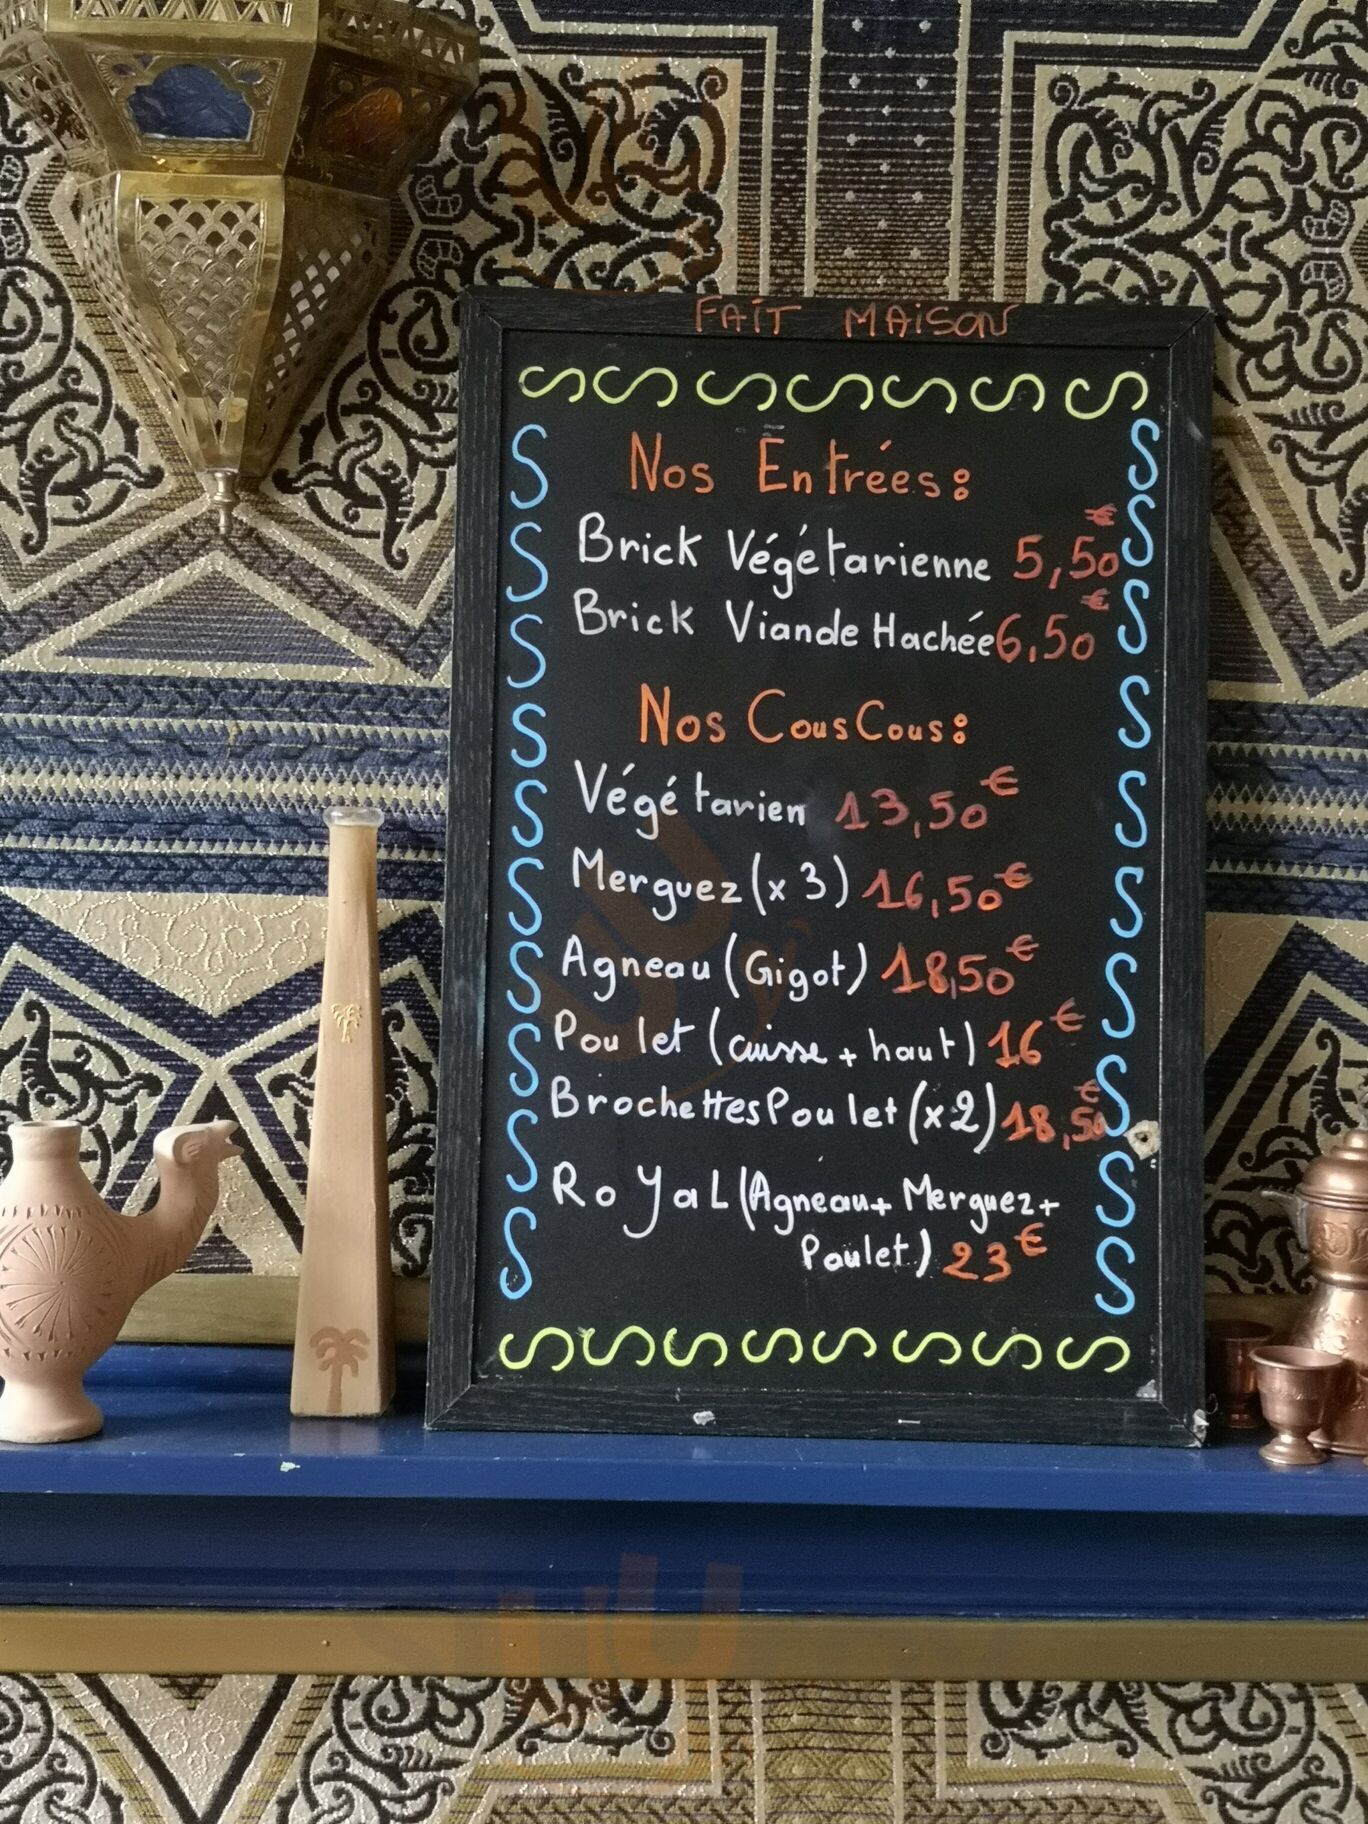 FAIT MAISON
Nos Entrées:
Brick Végétarienne 5,50€
Brick Viande Hachée 6,50€
Nos CousCous:
Végétarien 13,50€
Merguez (x 3) 16,50€
Agneau (Gigot) 18,50€
Poulet (cuisse + haut) 16€
Brochettes Poulet (x2) 18,50€
RoYaL (Agneau+ Merguez+
Poulet) 23€